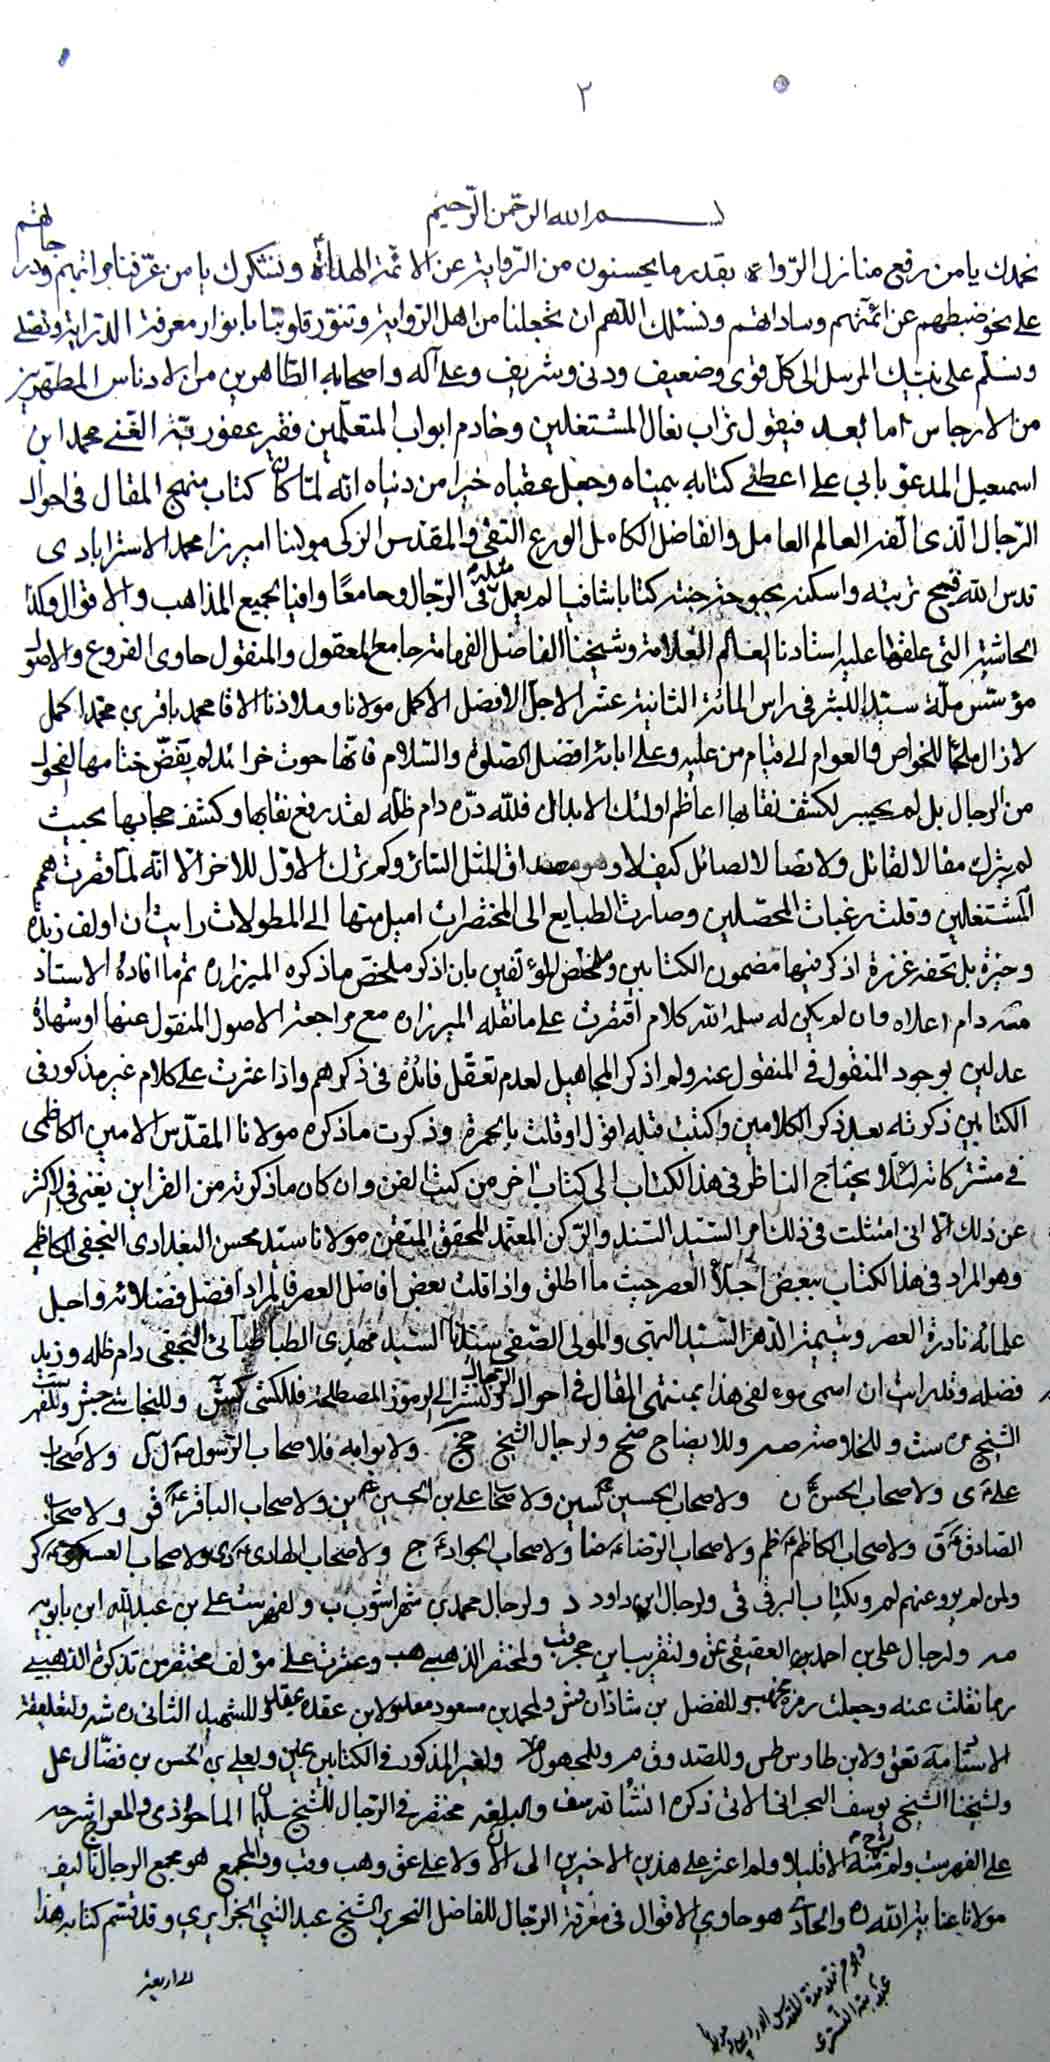 ٢
بسم الله الرحمن الرحيم
نحمدك يا من رفع منازل الرواة بقدر ما يحسنون من الرواية عن الائمة الهداة ونشكرك يا من عرفنا مراتبهم ودرجاتهم
على نحو ضبطهم عن ائمتهم وساداتهم ونسئلك اللهم ان تجعلنا من اهل الرواية وتنور قلوبنا بانوار معرفة الدراية ونصلى
ونسلم على نبيك المرسل الى كل قوى وضعيف ودنى وشريف وعلى آله واصحابه الطاهرين من الادناس المطهرين
من الارجاس اما بعد فيقول تراب نعال المشتغلين وخادم ابواب المتعلمين فقير عفو ربه الغنى محمد ابن
اسمعيل المدعو بابي على اعطى كتابه بيمناه وجعل عقباه خيرا من دنياه انه لما كان كتاب منهج المقال فى احوال
الرجال الذى الفه العالم العامل والفاضل الكامل الورع التقى والمقدس الزكى مولينا اميرزا محمد الاسترابادى
قدس الله فسيح تربته واسكنه بحبوحة جنته كتابا شافيا لم يعمل مثله فى الرجال وجامعا وافيا بجميع المذاهب والاقوال وكذا
الحاشية التى علقها عليه استادنا العالم العلامة وشيخنا الفاضل الفهامة جامع المعقول والمنقول حاوى الفروع والاصول
مؤسس ملة سيد البشر فى راس المائة الثانية عشر الاجل الافضل الاكمل مولانا وملاذنا الاقا محمد باقر بن محمد اكمل
لا زال ملجأ للخواص والعوام الى قيام من عليه وعلى ابائه افضل الصلوة والسلام فانها حوت خرائد لم يفض ختامها الفحول
من الرجال بل لم يجسر لكشف نقابها اعاظم اولئك الابدال فلله دره دام ظله لقد رفع نقابها وكشف حجابها بحيث
لم يترك مقالا لقائل ولا نصالا لصائل كيف لا وهو مصداق المثل السائر وكم ترك الاول للاخر الا انه لما قصرت همم
المشتغلين وقلت رغبات المحصلين وصارت الطبايع الى المختصرات اميل منها الى المطولات رايت ان اولف زبدة
وجيزة بل تحفة عزيزة اذكر فيها مضمون الكتابين وملخص المؤلفين بان اذكر ملخص ما ذكره الميرزا ره ثم ما افاده الاستاذ
دام اعلاه وان لم يكن له سلمه الله كلام اقتصرت على ما نقله الميرزا ره مع مراجعة الاصول المنقول عنها او شهادة
عدلين بوجود المنقول فى المنقول عنه ولم اذكر المجاهيل لعدم تعقل فائدة فى ذكرهم واذا عثرت على كلام غير مذكور فى
الكتابين ذكرته بعد ذكر الكلامين وكتبت قبله اقول او قلت بالحمرة وذكرت ما ذكره مولانا المقدس الامين الكاظمى
فى مشتركاته لئلا يحتاج الناظر فى هذا الكتاب الى كتاب اخر من كتب الفن وان كان ما ذكرته من القراين يغنى فى الاكثر
عن ذلك الا انى امتثلت فى ذلك امر السيد السند والركن المعتمد المحقق المتقن مولانا سيد محسن البغدادى النجفى الكاظمى
وهو المراد فى هذا الكتاب ببعض اجلاء العصر حيث ما اطلق واذا قلت بعض افاضل العصر فالمراد افضل فضلائه واجل
علمائه نادرة العصر ويتيمة الدهر السيد البهى والمولى الصفى سيدنا السيد مهدى الطباطبائى النجفى دام ظله وزيد
فضله وقد رايت ان اسمى مؤلفى هذا بمنتهى المقال فى احوال الرجال ولنشر الى الرموز المصطلحة فللكشى كش وللنجاشى جش ولفهرست
الشيخ ره ست وللخلاصة صه وللايضاح ضح ولرجال الشيخ جخ ولابوابه فلاصحاب الرسول ص ل ولاصحاب
على ع ى ولاصحاب الحسن ع ن ولاصحاب الحسين ع سين ولاصحاب على بن الحسين ع ين ولاصحاب الباقر ع قر ولاصحاب
الصادق ع ق ولاصحاب الكاظم ع ظم ولاصحاب الرضا ع ضا ولاصحاب الجواد ع ج ولاصحاب الهادى ع دى ولاصحاب العسكرى ع كر
ولمن لم يرو عنهم لم ولكتاب البرقى قى ولرجال ابن داود د ولرجال محمد بن شهراشوب ب ولفهرست على بن عبيد الله ابن بابويه
عه ولرجال على بن احمد بن العقيقى عق ولتقريب ابن حجر قب ولمختصر الذهبى هب وعثرت على مؤلف مختصر من تذكرة الذهبى
ربما نقلت عنه وجعلت رمزه وللفضل بن شاذان فش ولمحمد بن مسعود معد ولابن عقدة عقد وللشهيد الثانى ره شه ولتعليقة
الاستاد تعق ولابن طاوس طس وللصدوق ق وللمجهول م ولغير المذكور فى الكتابين ولعلى بن الحسن بن فضال عل
ولشيخنا الشيخ يوسف البحرانى الاتى ذكره انشاءالله سف والبلغه مختصر فى الرجال للشيخ سليمان الماحوذى والمعراج شرحه
على الفهرست ولم يخرج منه الا قليلا ولم اعثر على هذين الاخيرين الى الان ولا على عق وهب وقب والمجمع هو مجمع الرجال تاليف
مولانا عناية الله ره والحاوى هو حاوى الاقوال فى معرفة الرجال للفاضل النحرير الشيخ عبد النبى الجزايرى وقد قسم كتابه هذا
الى اربعة